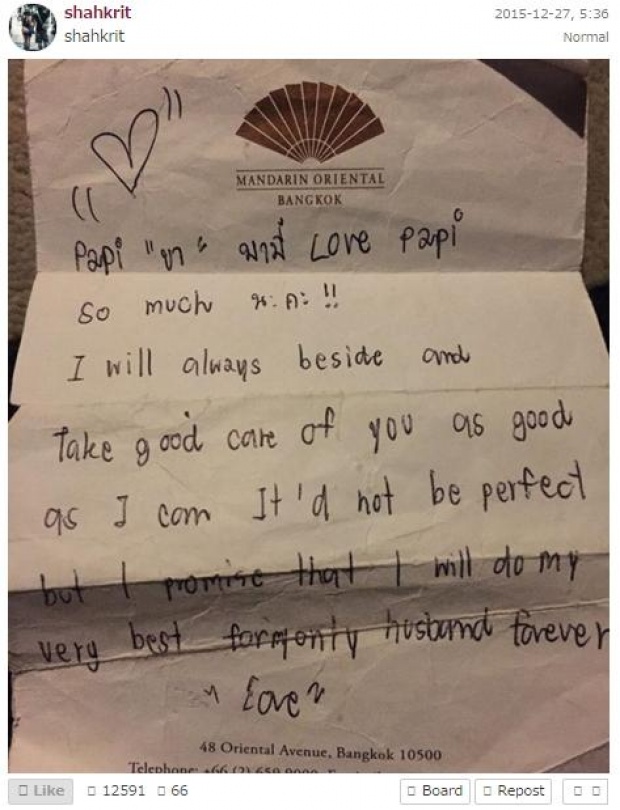 shahkrit
2015-12-27, 5:36
shahkrit
Normal
MANDARIN ORIENTAL
BANGKOK
Papi "ขา" มามี๊ Love papi
so much นะคะ !!
I will always beside and
Take good care of you as good
as I can It'd not be perfect
but I promise that I will do my
very best formonly husband forever
~ Love ~
48 Oriental Avenue, Bangkok 10500
Telephone: +66 (2) 659 9000
Like 12591 66 Board Repost